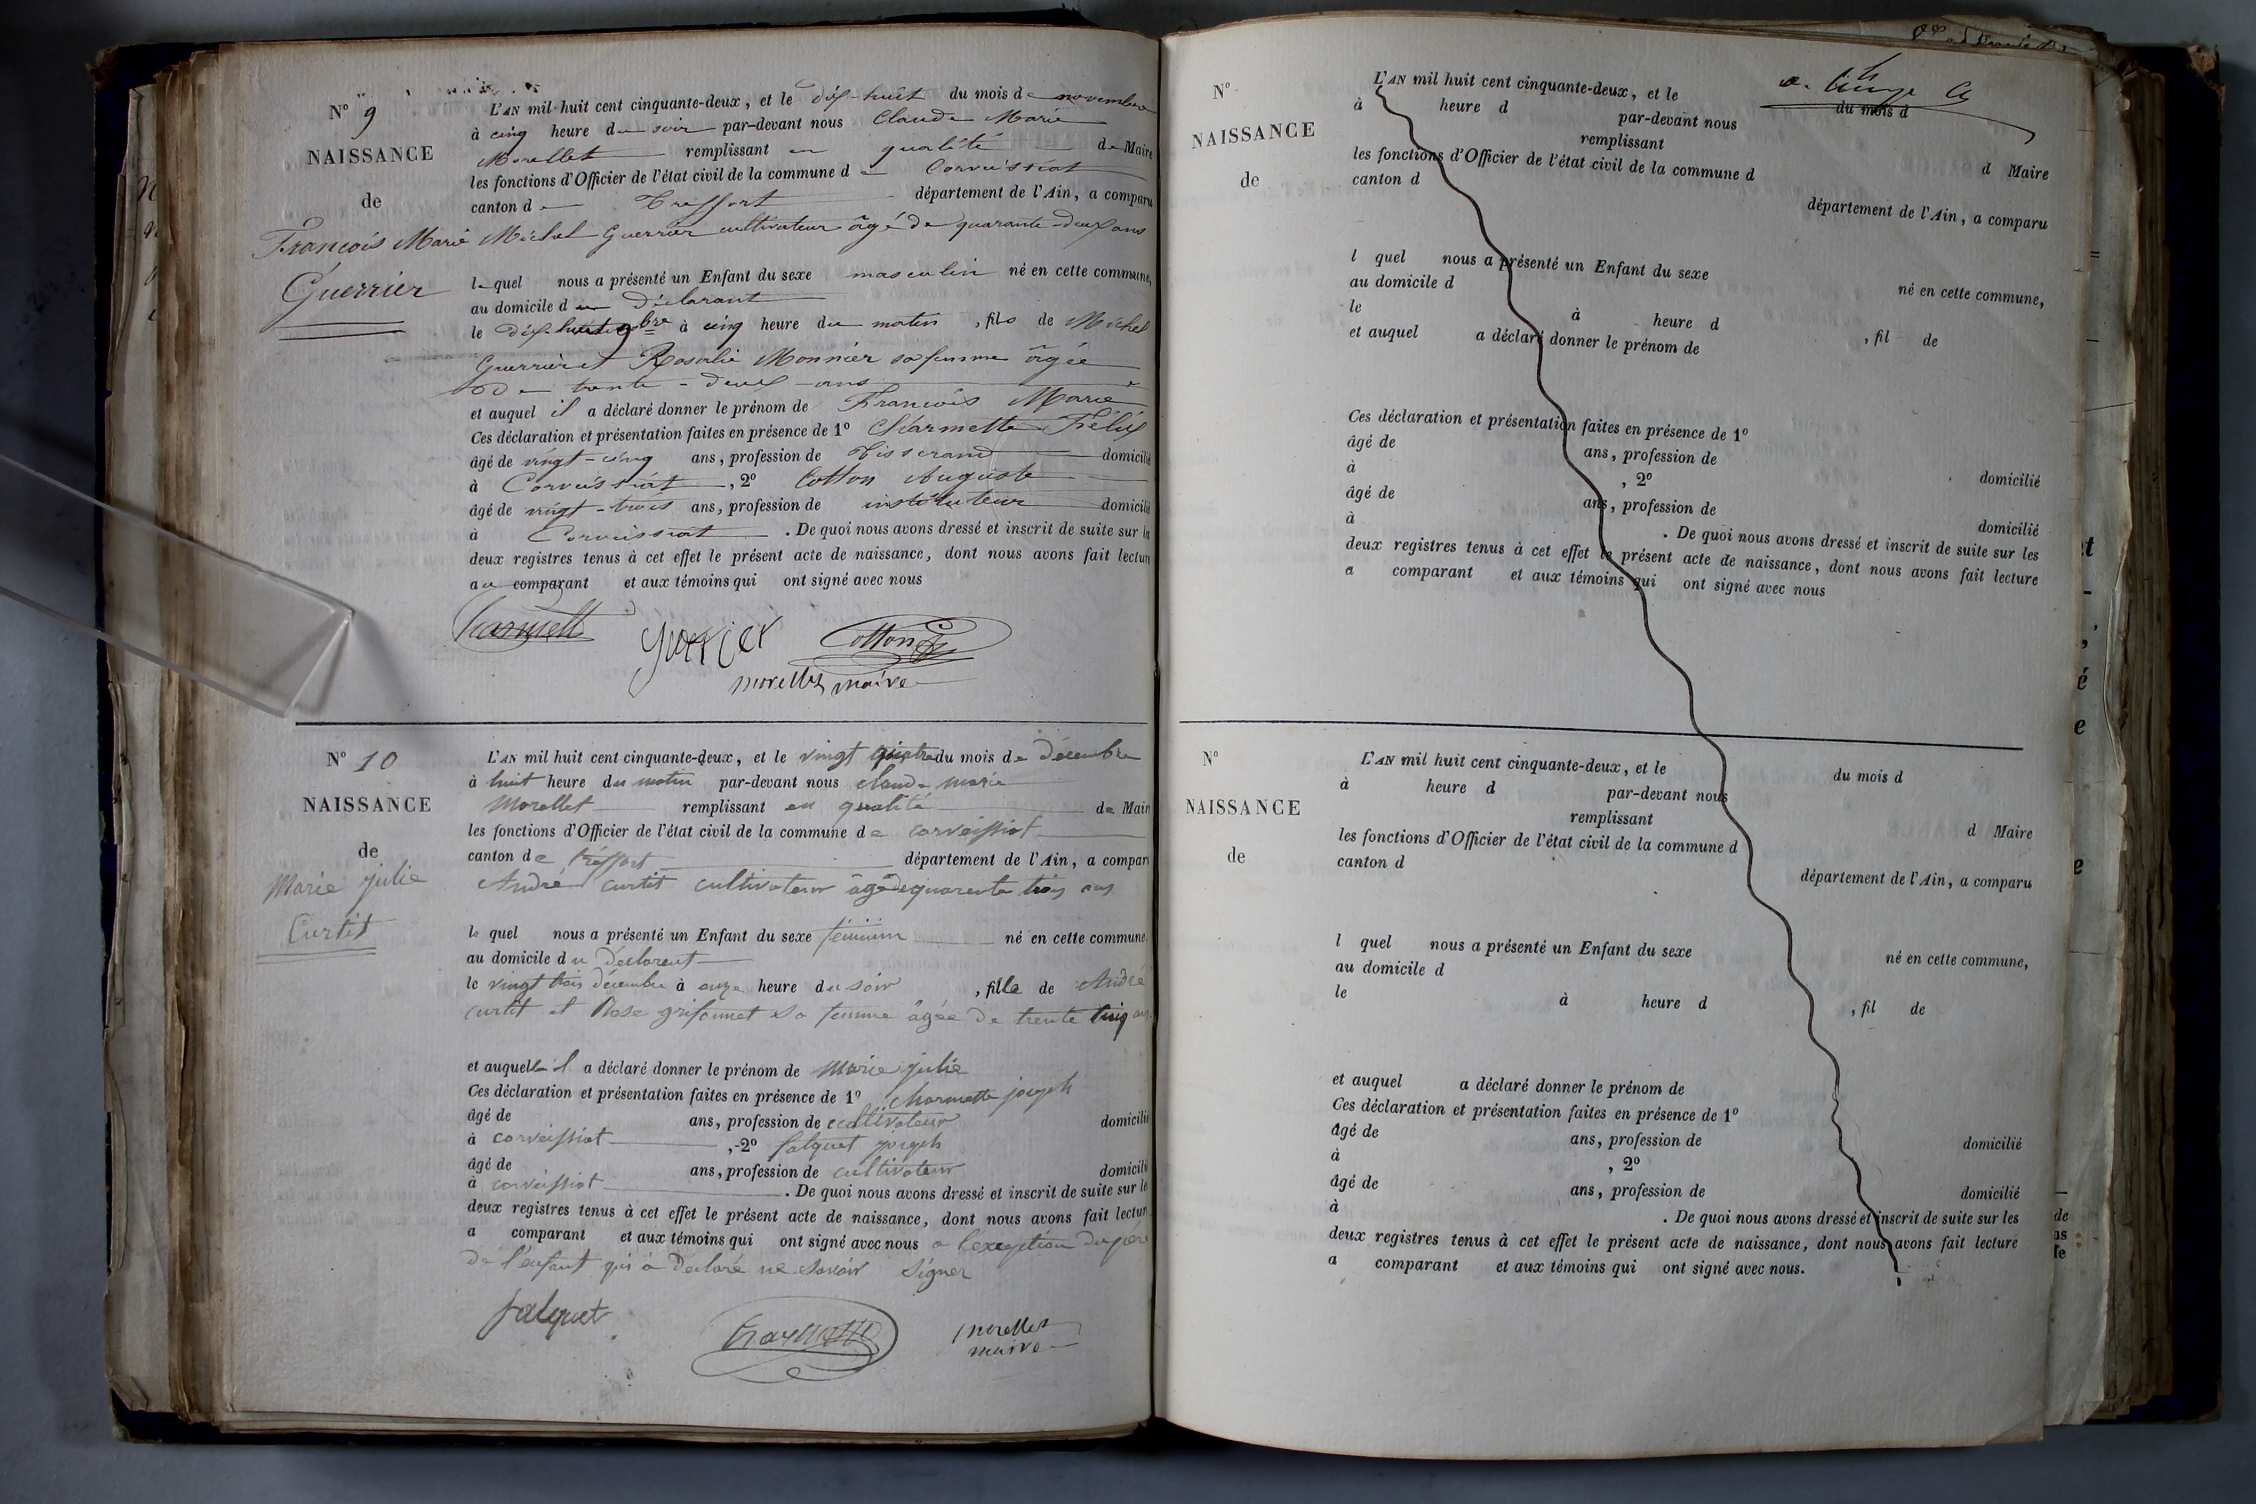 N° 9
NAISSANCE
de
François Marie
Guerrier
L'AN mil huit cent cinquante-deux, et le dix-huit du mois de novembre
à cinq heure du soir par-devant nous Claude Marie
Morellet remplissant en qualité de Maire
les fonctions d'Officier de l'état civil de la commune de Corveissiat
canton de Treffort département de l'Ain, a comparu
Michel Guerrier cultivateur âgé de quarante-deux ans
lequel nous a présenté un Enfant du sexe masculin né en cette commune,
au domicile du Déclarant
le dix-huit 9bre à cinq heure du matin, fils de Michel
Guerrier et Rosalie Monnier sa femme âgée
de trente-deux ans
et auquel il a déclaré donner le prénom de François Marie
Ces déclaration et présentation faites en présence de 1° Charmette Félix
âgé de vingt-cinq ans, profession de Tisserand domicilié
à Corveissiat, 2° Cotton Auguste
âgé de vingt-trois ans, profession de instituteur domicilié
à Corveissiat. De quoi nous avons dressé et inscrit de suite sur les
deux registres tenus à cet effet le présent acte de naissance, dont nous avons fait lecture
au comparant et aux témoins qui ont signé avec nous
Charmette
guerrier
Cotton
morellet maire
N° 10
NAISSANCE
de
Marie julie
Curtit
L'AN mil huit cent cinquante-deux, et le vingt quatre du mois de décembre
à huit heure du matin par-devant nous claude marie
Morellet remplissant en qualité de Maire
les fonctions d'Officier de l'état civil de la commune de corveissiat
canton de treffort département de l'Ain, a comparu
André curtit cultivateur âgé de quarente trois ans
lequel nous a présenté un Enfant du sexe féminin né en cette commune,
au domicile du Déclarent
le vingt trois décembre à onze heure du soir, fille de André
curtit et Rose grifonnet sa femme âgée de trente cinq ans
et auquelle il a déclaré donner le prénom de Marie julie
Ces déclaration et présentation faites en présence de 1° Charmette joseph
âgé de ans, profession de cultivateur domicilié
à corveissiat, 2° falquet joseph
âgé de ans, profession de cultivateur domicilié
à corveissiat. De quoi nous avons dressé et inscrit de suite sur les
deux registres tenus à cet effet le présent acte de naissance, dont nous avons fait lecture
a comparant et aux témoins qui ont signé avec nous a l'exception du père
de l'enfant qui a Declaré ne savoir signer
falquet
Charmette
morellet
maire
N°
NAISSANCE
de
L'AN mil huit cent cinquante-deux, et le du mois d
à heure d par-devant nous
remplissant d Maire
les fonctions d'Officier de l'état civil de la commune d
canton d département de l'Ain, a comparu
l quel nous a présenté un Enfant du sexe né en cette commune,
au domicile d
le à heure d, fil de
et auquel a déclaré donner le prénom de
Ces déclaration et présentation faites en présence de 1°
âgé de ans, profession de domicilié
à, 2°
âgé de ans, profession de domicilié
à. De quoi nous avons dressé et inscrit de suite sur les
deux registres tenus à cet effet le présent acte de naissance, dont nous avons fait lecture
a comparant et aux témoins qui ont signé avec nous
N°
NAISSANCE
de
L'AN mil huit cent cinquante-deux, et le du mois d
à heure d par-devant nous
remplissant d Maire
les fonctions d'Officier de l'état civil de la commune d
canton d département de l'Ain, a comparu
l quel nous a présenté un Enfant du sexe né en cette commune,
au domicile d
le à heure d, fil de
et auquel a déclaré donner le prénom de
Ces déclaration et présentation faites en présence de 1°
âgé de ans, profession de domicilié
à, 2°
âgé de ans, profession de domicilié
à. De quoi nous avons dressé et inscrit de suite sur les
deux registres tenus à cet effet le présent acte de naissance, dont nous avons fait lecture
a comparant et aux témoins qui ont signé avec nous.